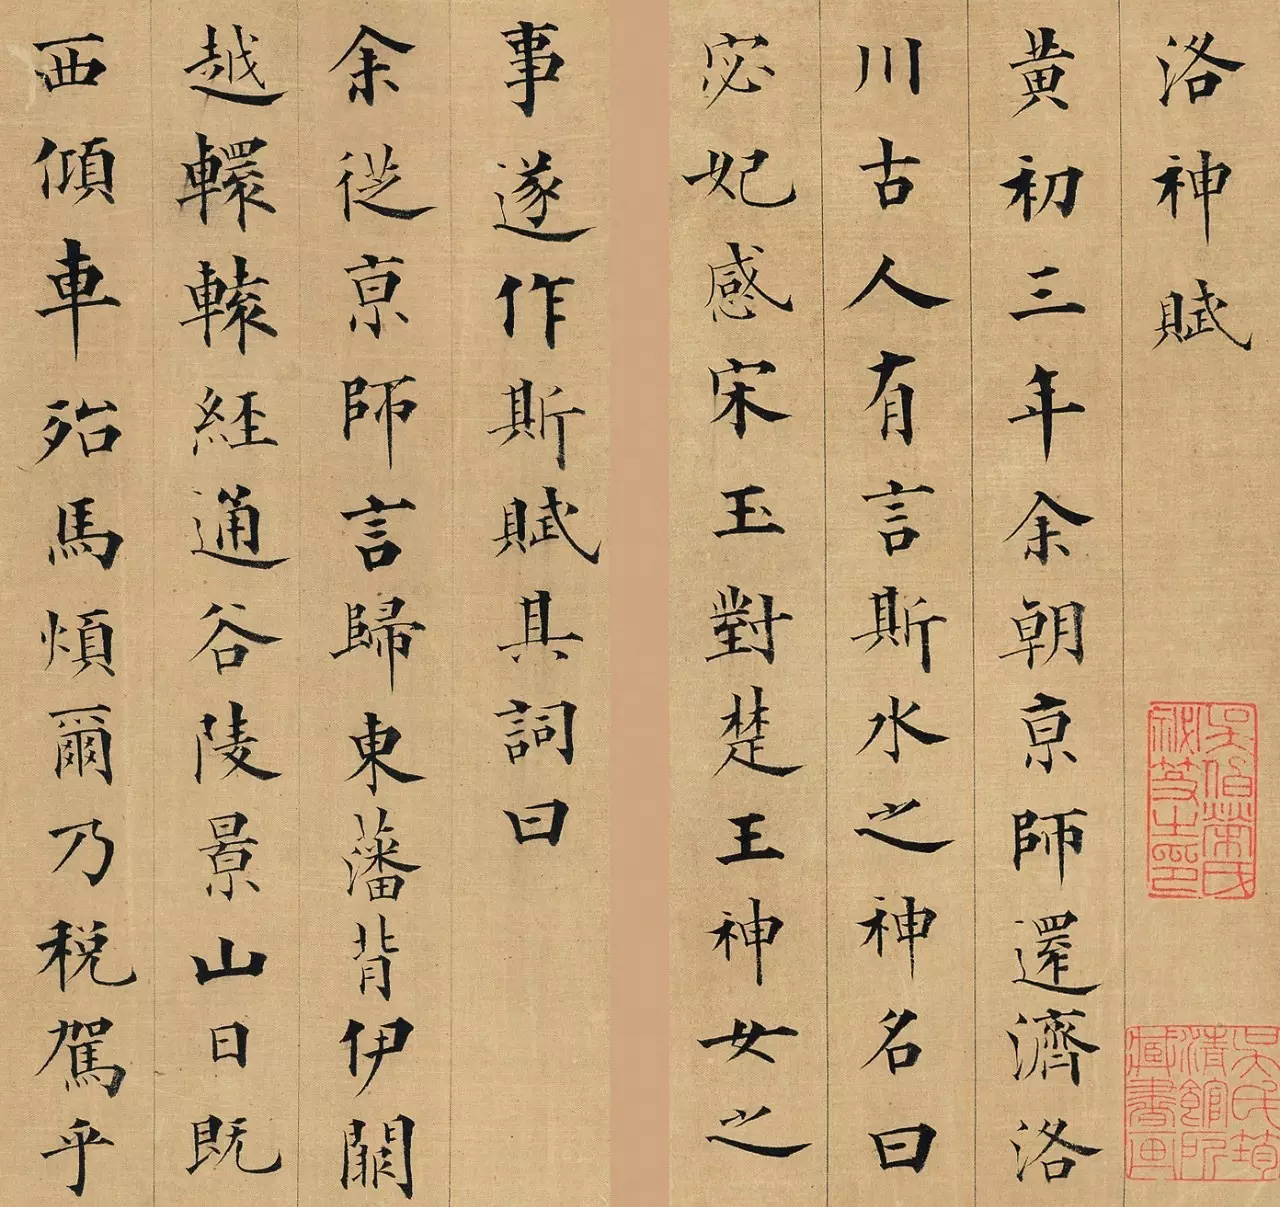 洛神賦
黄初三年余朝京師還濟洛
川古人有言斯水之神名曰
宓妃感宋玉對楚王神女之
事遂作斯賦其詞曰
余從京師言歸東藩背伊闕
越轘轅経通谷陵景山日既
西傾車殆馬煩爾乃稅駕乎
吳氏筠清館所藏書画